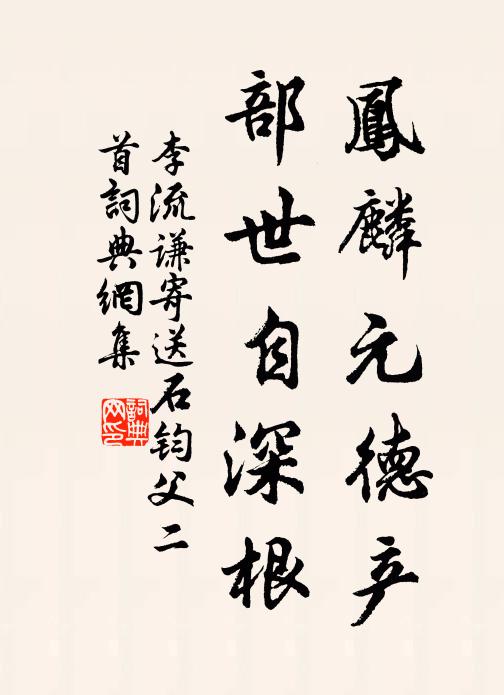 鳳麟元德产
部世自深根
李流谦寄送石钧父二
首詞典網集
詞典
网印